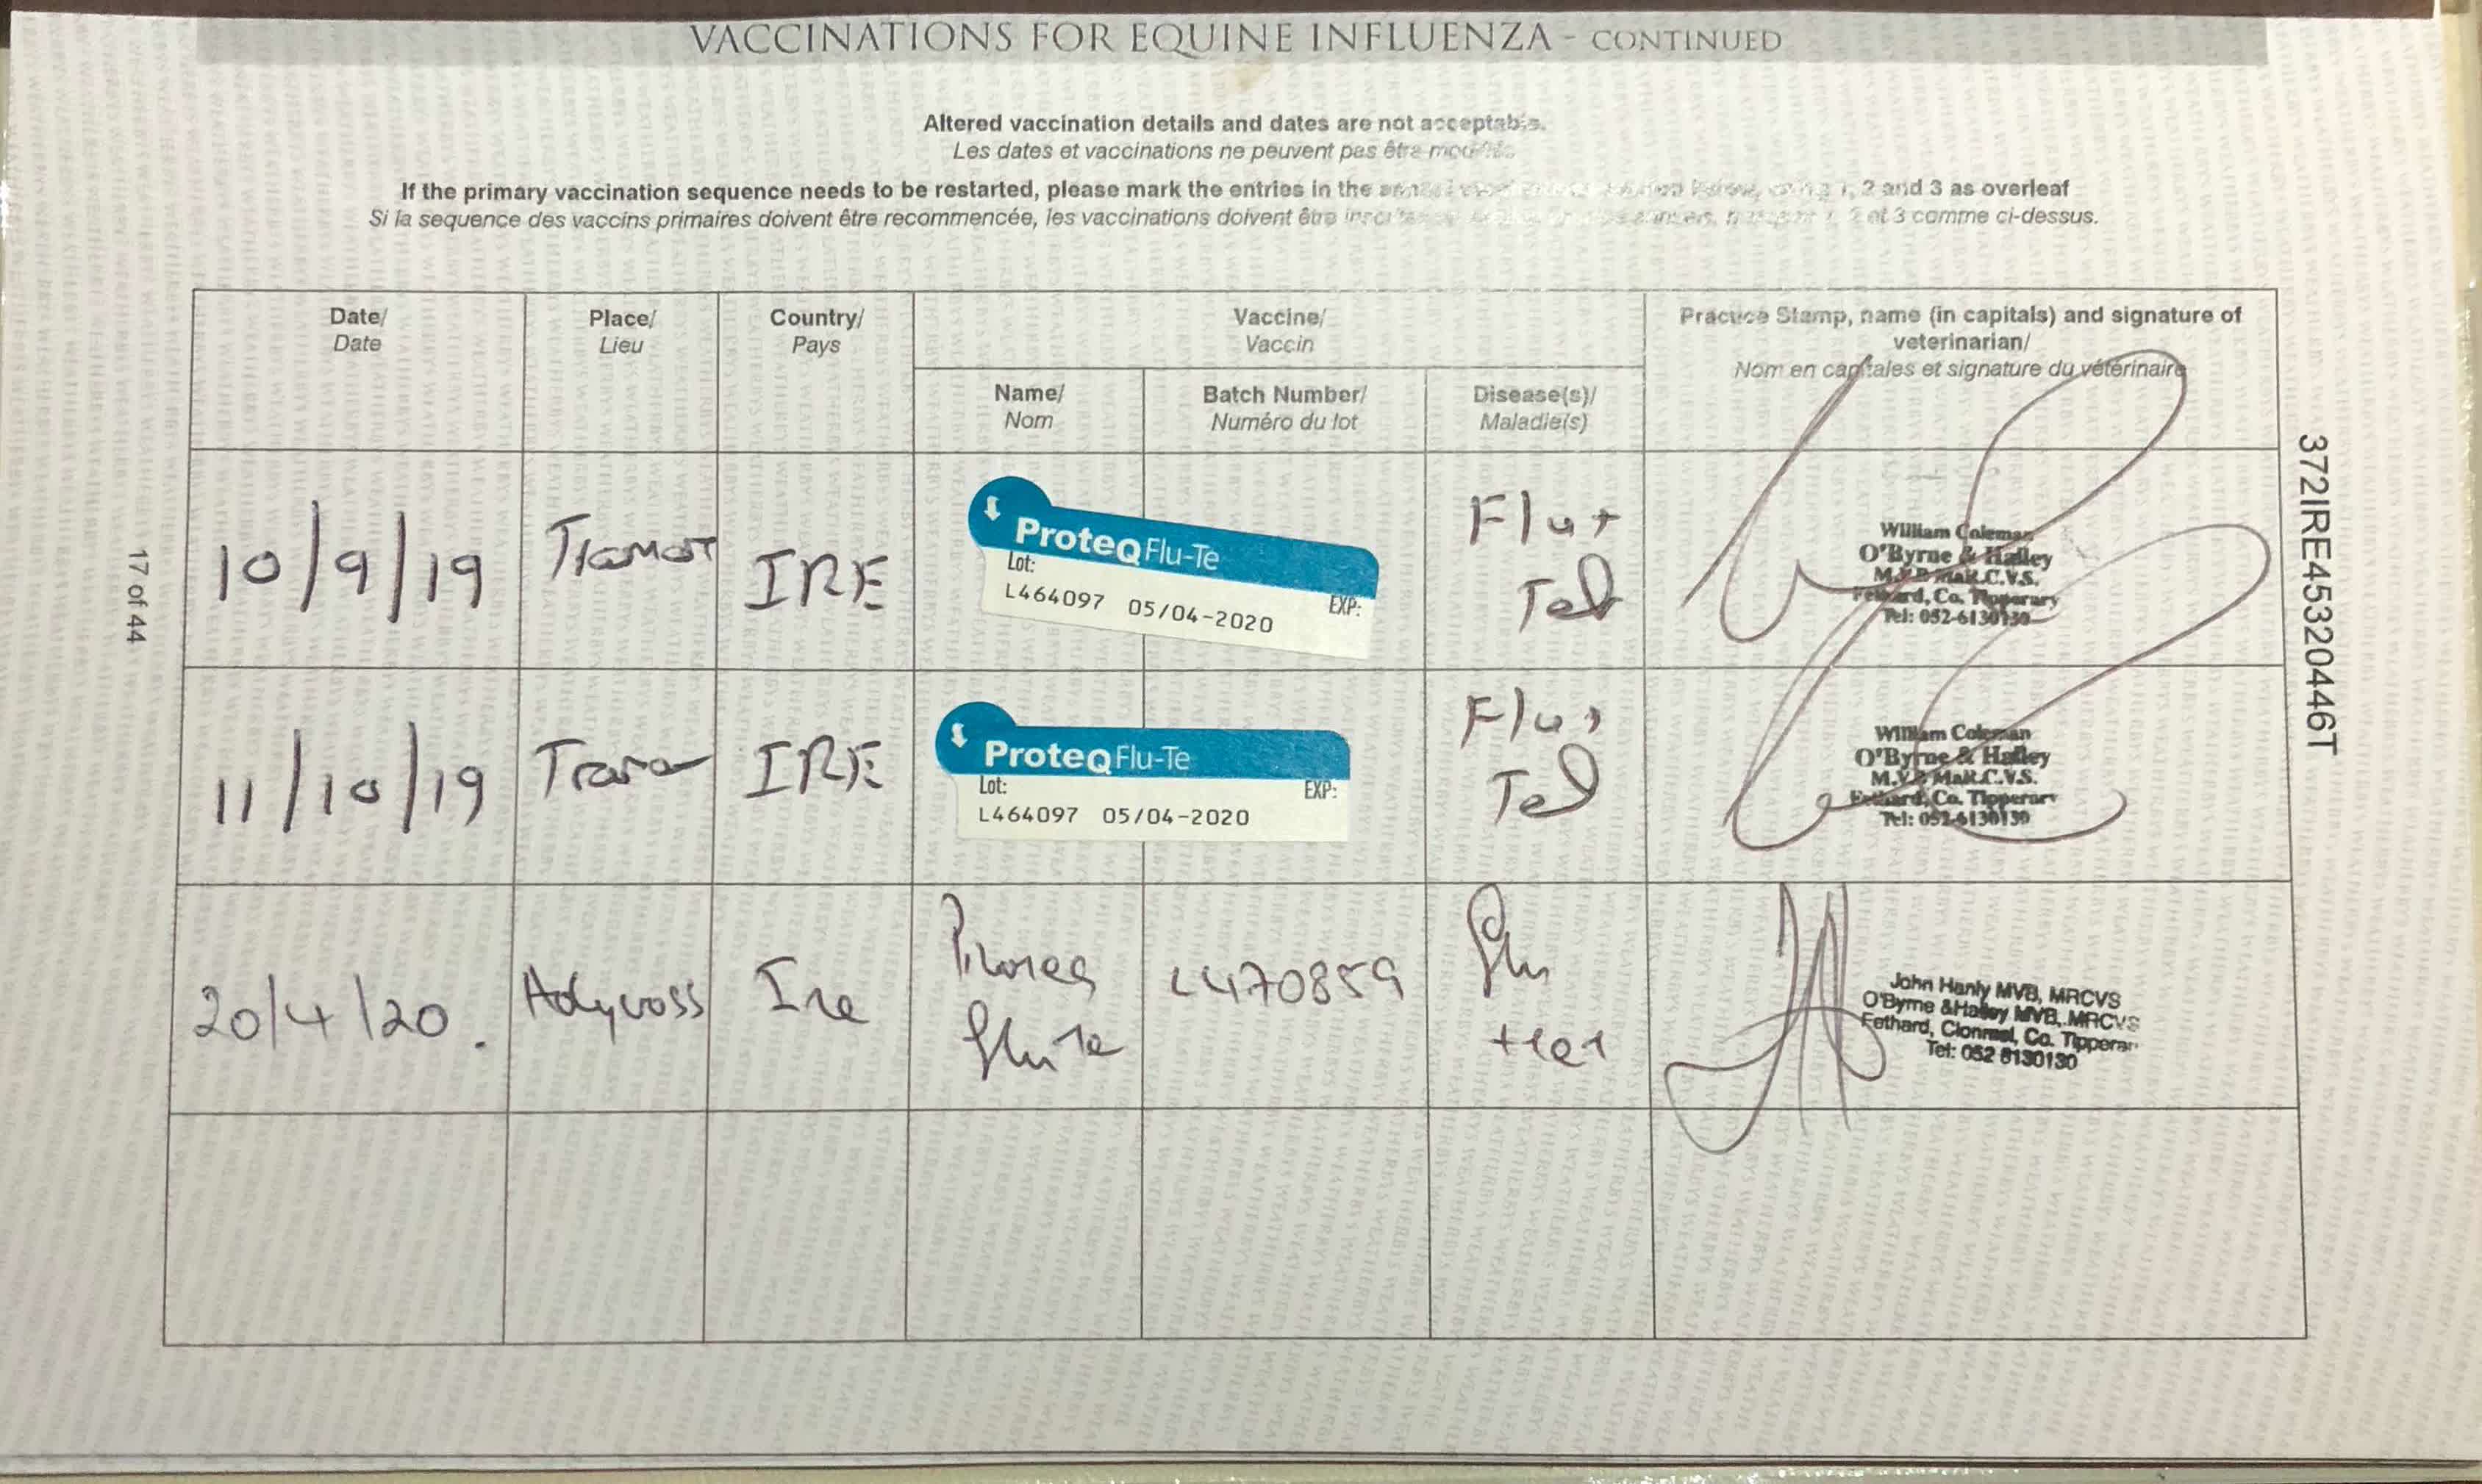 VACCINATIONS FOR EQUINE INFLUENZA - CONTINUED
Altered vaccination details and dates are not acceptable.
Les dates et vaccinations ne peuvent pas être
If the primary vaccination sequence needs to be restarted, please mark the entries in the 2 and 3 as overleaf
Si la sequence des vaccins primaires doivent être recommencée, les vaccinations doivent être 2 et 3 comme ci-dessus.
Date/
Date
Place/
Lieu
Country/
Pays
Vaccine/
Vaccin
Name/
Nom
Batch Number/
Numéro du lot
Disease(s)/
Maladie(s)
Practice Stamp, name (in capitals) and signature of
veterinarian/
Nom en capitales et signature du vétérinaire
10/9/19
IRE
ProteqFlu-Te
Lot:
EXP:
L464097 05/04-2020
Flu +
Tet
William Coleman
O'Byrne & Halley
Fethard, Co. Tipperary
Tel: 052-6130130
11/10/19
IRE
ProteqFlu-Te
Lot:
EXP:
L464097 05/04-2020
Flu +
Tet
William Coleman
O'Byrne & Halley
Fethard, Co. Tipperary
Tel: 052-6130130
20/4/20.
Ire
L470859
Flu
+tet
John Hanly MVB, MRCVS
O'Byrne & Halley MVB, MRCVS
Fethard, Clonmel, Co. Tipperar
Tel: 052 6130130
17 of 44
372IRE45320446T